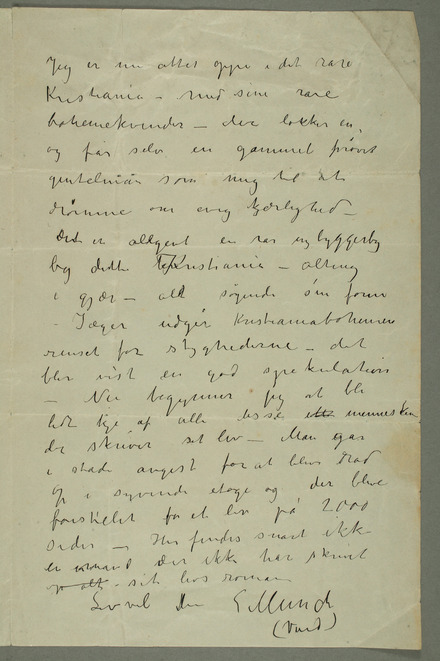 Jeg er nu attet oppe i det rare
Kristiania – med sine rare
bohemekvinder – der lokker en
og får selv en gammel prøvet
gentelman som mig til at
drømme om evig kjærlighed –
Det er allgent en rar nybyggerby
by dette Kristiania – alting
i gjær – alt søgende sin form
– Jæger udgir Kristianiabohemen
renset for styghederne – det
blir vist en god spekulation
– Nu begynner jeg at bli
lidt kje af alle disse mennesker
der skriver sit liv – Man går
i stadi angest for at blive dradd
op i syvende etage og der blive
forskelet for et liv på 2000
sider – Her findes snart ikke
en mand der ikke har skrevet
sit livs roman
Lev vel Din E Munch
(Vend)